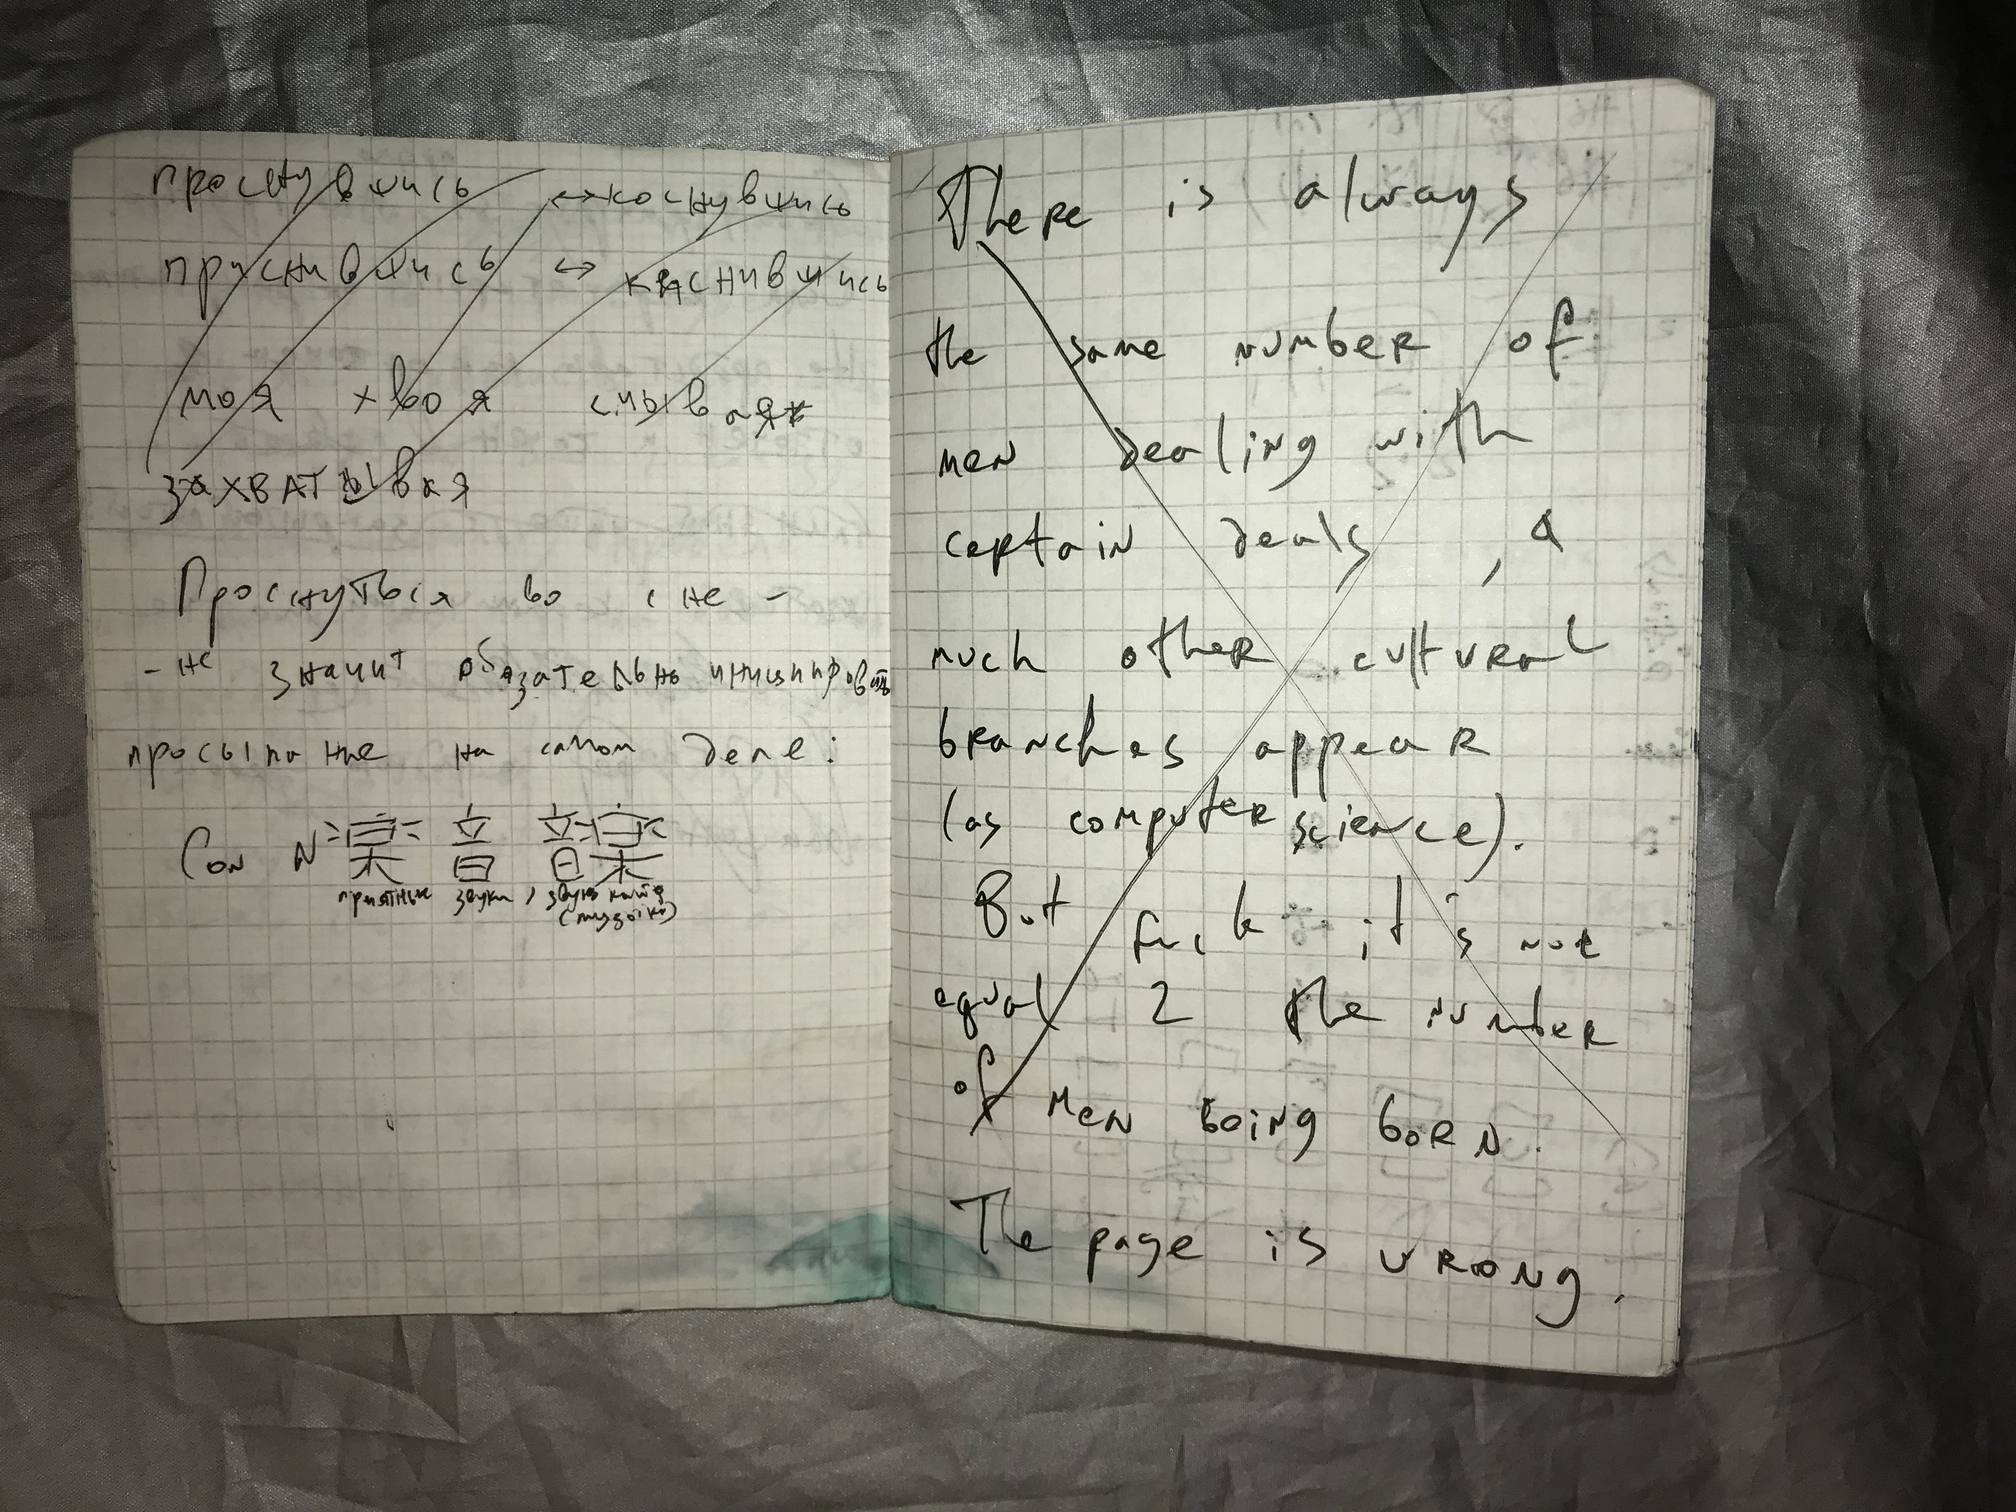 проснувшись ↔ коснувшись
пруснившись ↔ кяснившись
моя хвоя смывая
захватывая
Проснуться во сне -
- не значит обязательно инициировать
просыпание на самом деле:
Con N 樂 音 音樂
приятные звуки, звуки
There is always
the same number of
men dealing with
certain deals, &
much other cultural
branches appear
(as computer science).
But fuck it's not
equal 2 the number
of men being born.
The page is vrong.